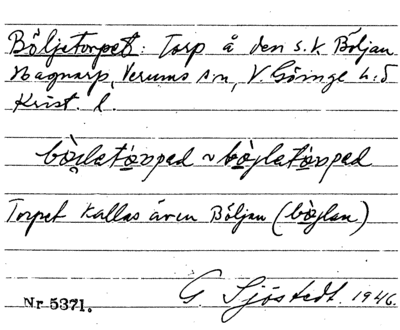 Böljetorpet: Torp å den s.k. Böljan
Hagnarp, Verums s:n, V. Göinge h:d
Krist. l.
bòi̯latórped ~ bòjlatórped
Torpet kallas även Böljan (bòjlan)
G Sjöstedt. 1946.
Nr 5371.